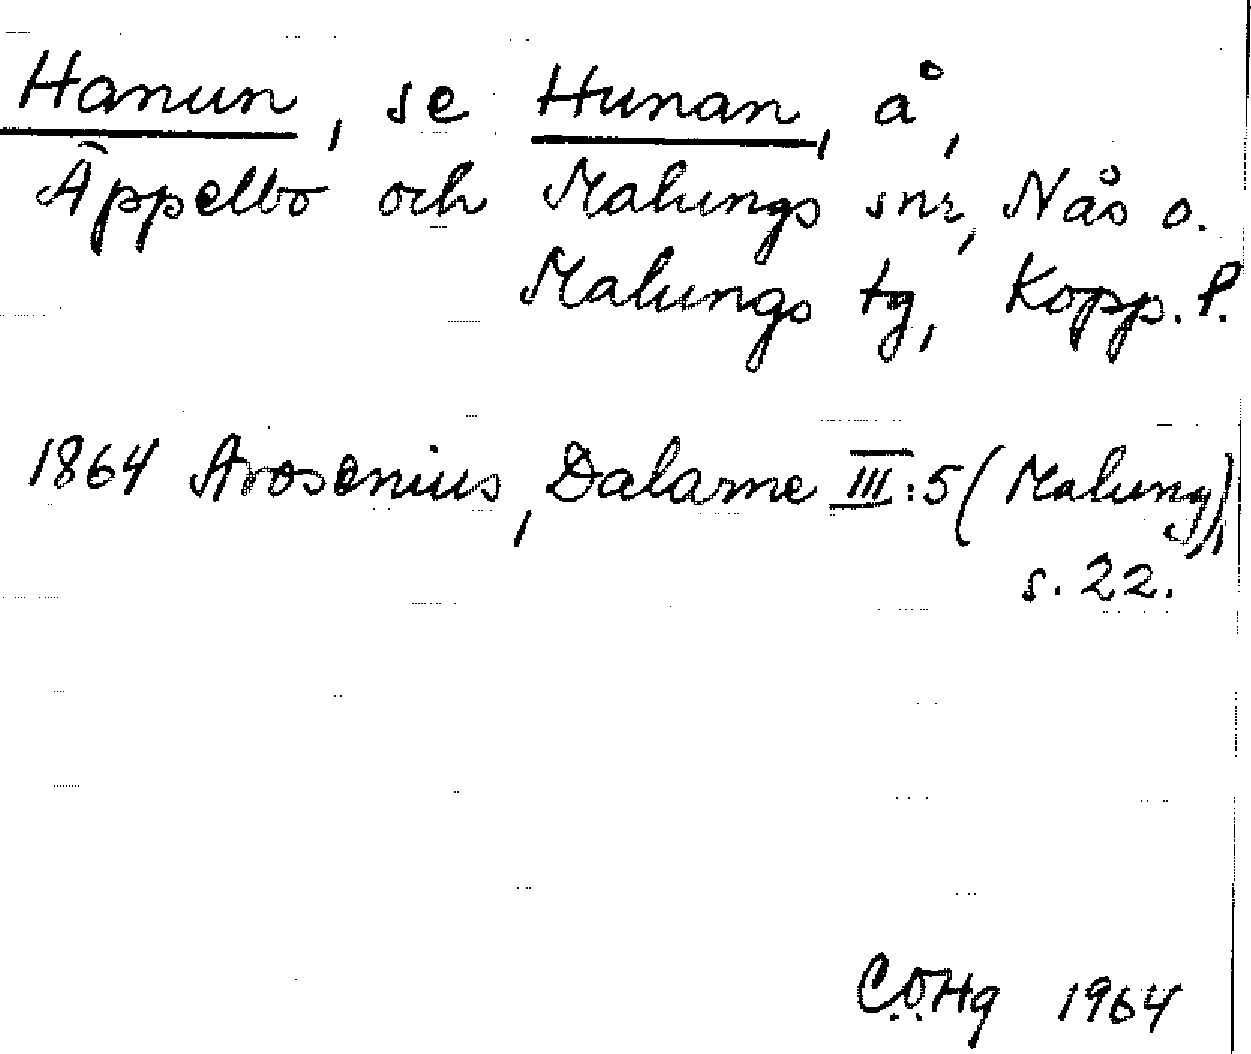 Hanun, se Hunan, å,
Äppelbo och Malungs snr, Nås o.
Malungs tg, Kopp. l.
1864 Arosenius, Dalarne III:5 (Malung),
s. 22.
C.Ö.Hg 1964